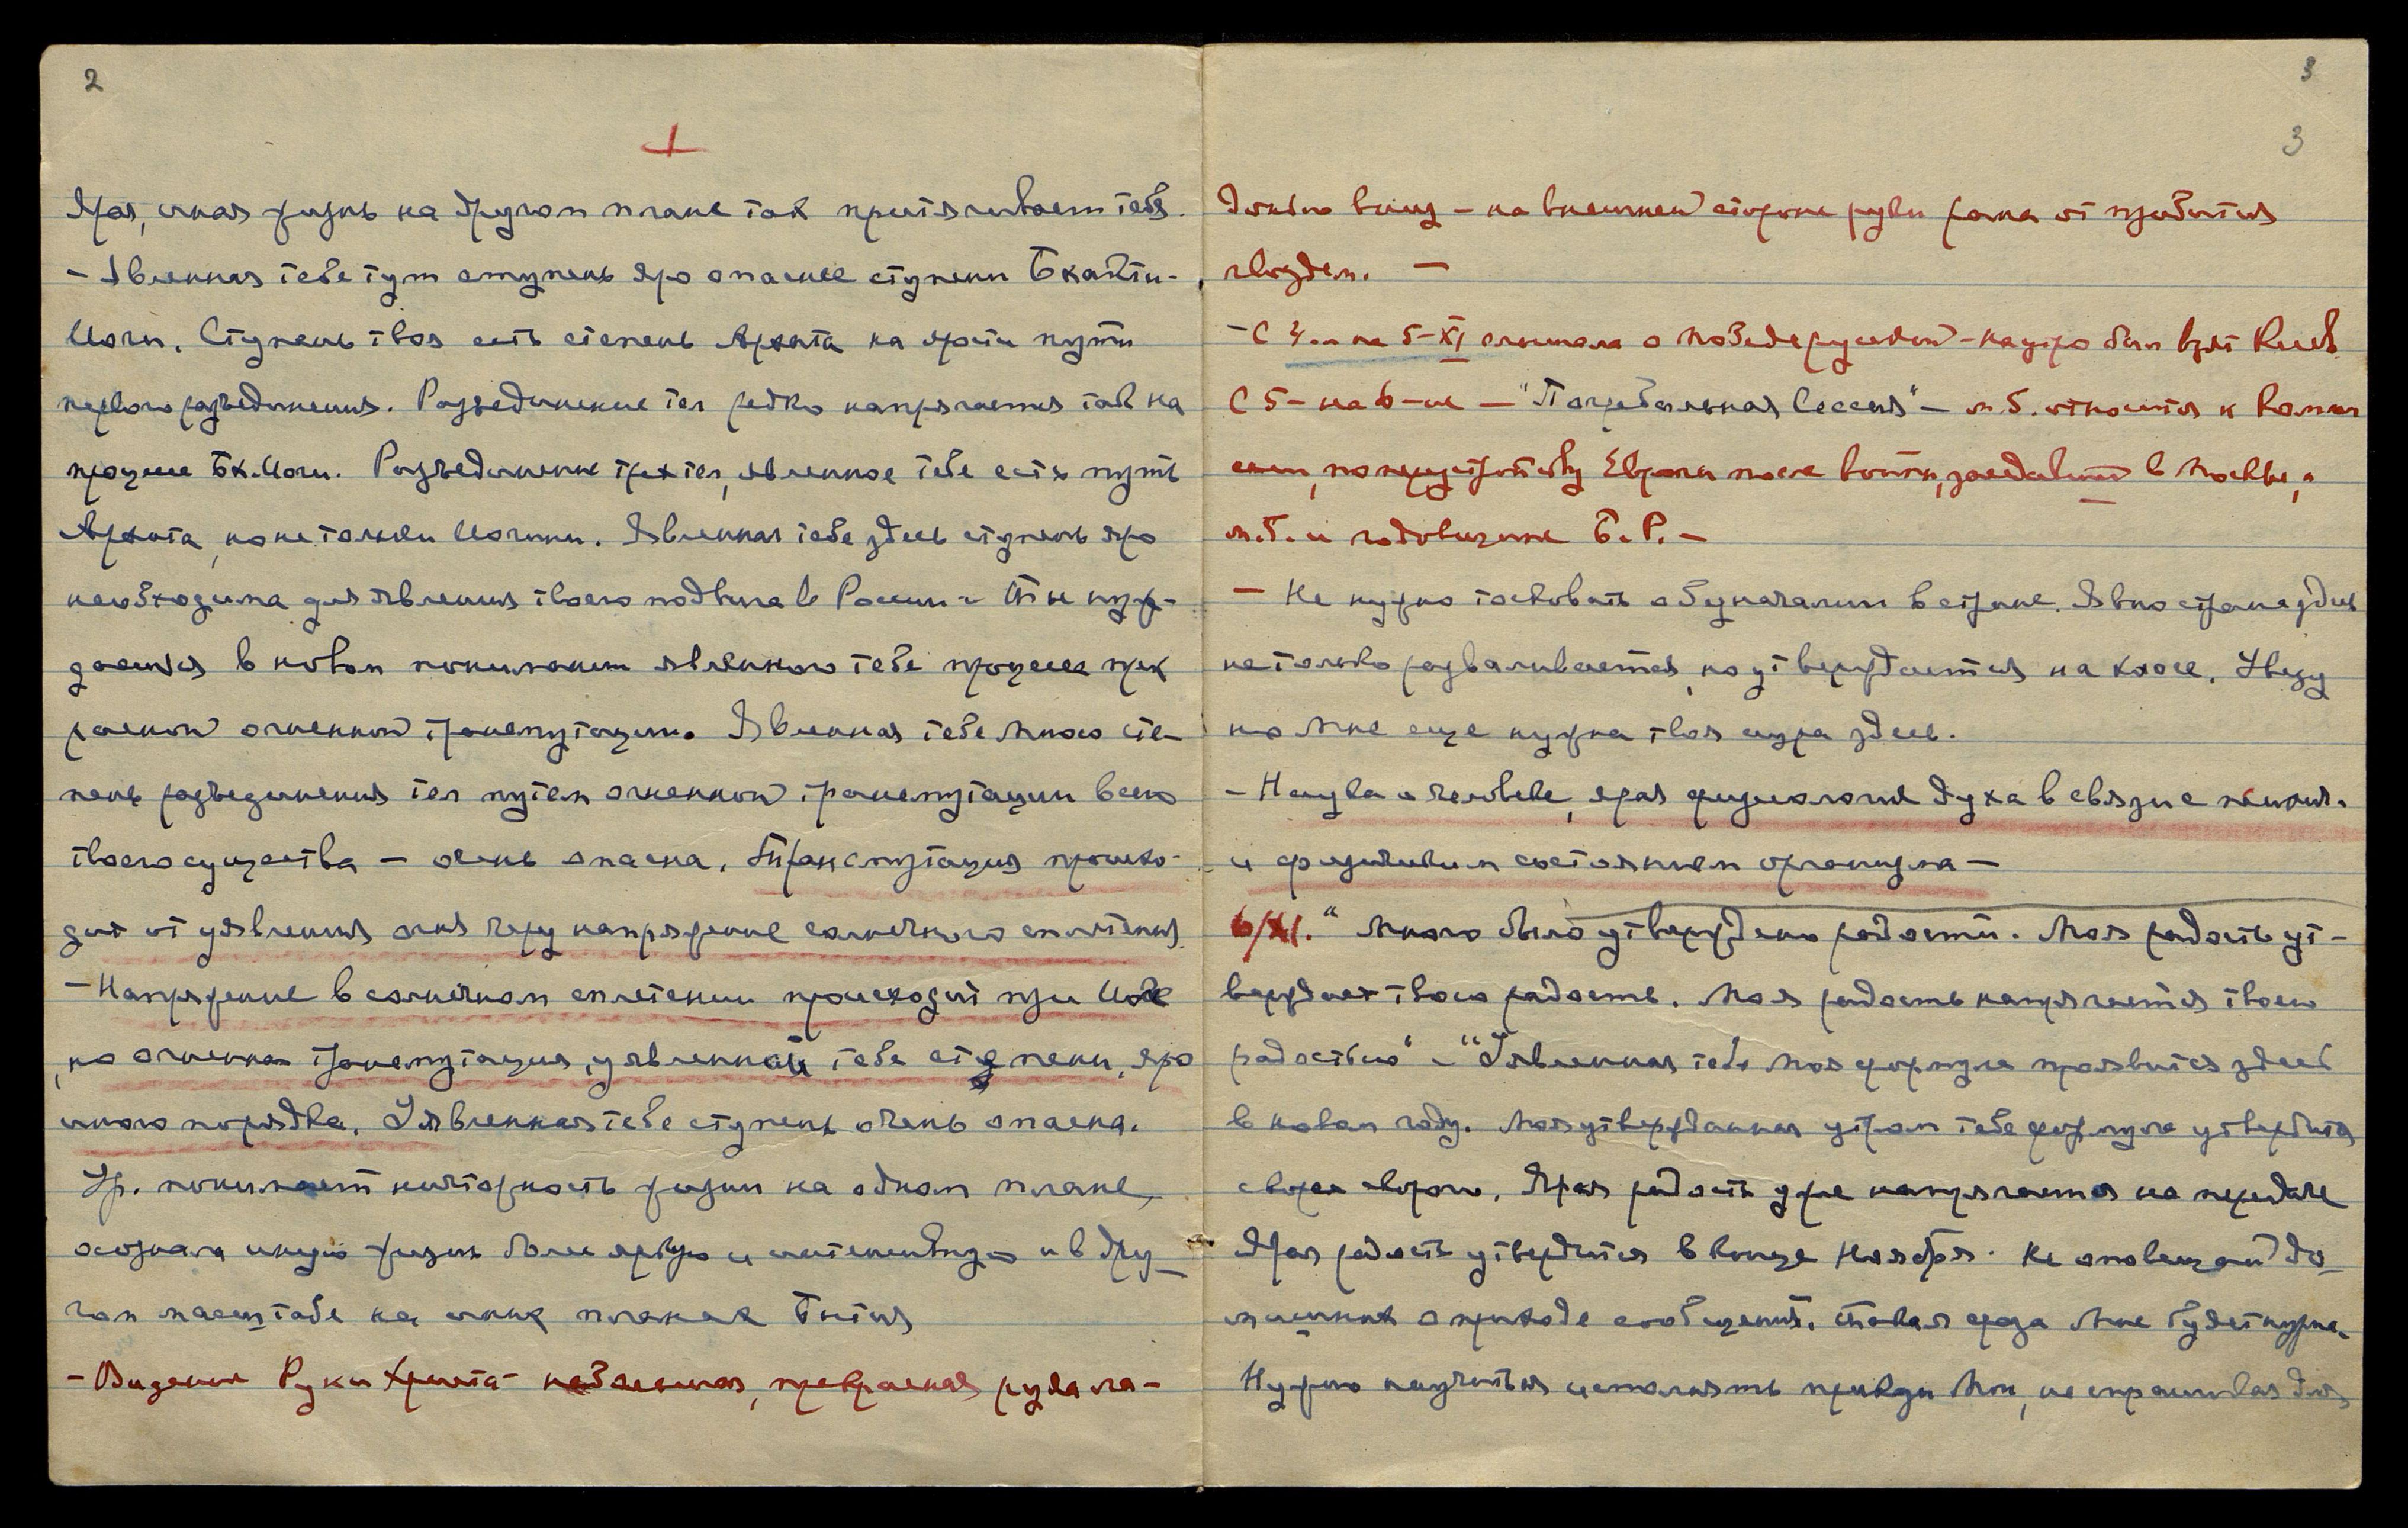 2
Ярая, иная жизнь на другом плане так притягивает тебя.
- Явленная тебе тут ступень яро опаснее ступени Бхакти-
Йоги. Ступень твоя есть степень Архата на яром пути
нервного разъединения. Разъединение тел редко напрягается так на
процессе Бх. Йоги. Разъединение трех тел, явленное тебе есть путь
Архата, но не только Йогини. Явленная тебе здесь ступень яро
необходима для явления твоего подвига в России и нуж-
дается в новом понимании явленного тебе процесса прек
расной огненной трансмутации. Явленная тебе Мною сте-
пень разъединения тел путем огненной трансмутации всего
твоего существа - очень опасна. Трансмутация происхо-
дит от уявления огня через напряжение солнечного сплетения.
- Напряжение в солнечном сплетении происходит при Йоге
, но огненная трансмутация, уявленной тебе ступени, яро
иного порядка. Уявленная тебе ступень очень опасна.
Ур. понимает ничтожность жизни на одном плане,
осознала иную жизнь более яркую и интенсивную и в дру-
гом масштабе на иных планах Бытия
- Видение Руки Христа - небольшая, прекрасная рука ла-
3
3
донью вниз - на внешней стороне руки рана от пробития
гвоздем. -
- С 4.. на 5-XI слышала о победе русской - наутро был взят Киев
С 5- на 6-ое - "Погребальная Сессия" - м.б. относится к Комис
сии, по переустройству Европы после войны, заседавшей в Москве,
м.б. и годовщине Б.Р. -
- Не нужно тосковать о безначалии в стране. Явно страна здесь
не только разваливается, но утверждается на хаосе. Увезу
но Мне еще нужна твоя аура здесь.
- Наука о человеке, ярая физиология духа в связи с психич.
и физическим состоянием организма -
6/XI. " Много было утверждено радости. Моя радость ут-
верждает твою радость. Моя радость напрягается твоею
радостью" - "Уявленная тебе Моя формула проявится здесь
в новом году. Моя утвержденная утром тебе формула утвердится
скорее скорого. Ярая радость уже напрягается на передаче
Ярая радость утвердится в конце Ноября. Не оповещай до-
машних о приходе сообщений. Такая фраза Мне будет нужна.
Нужно научиться исполнять приказы Мои, не спрашивая для